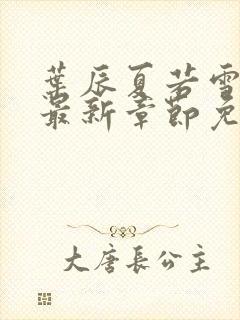 葉辰夏若雪
最新章節免
大唐長公主